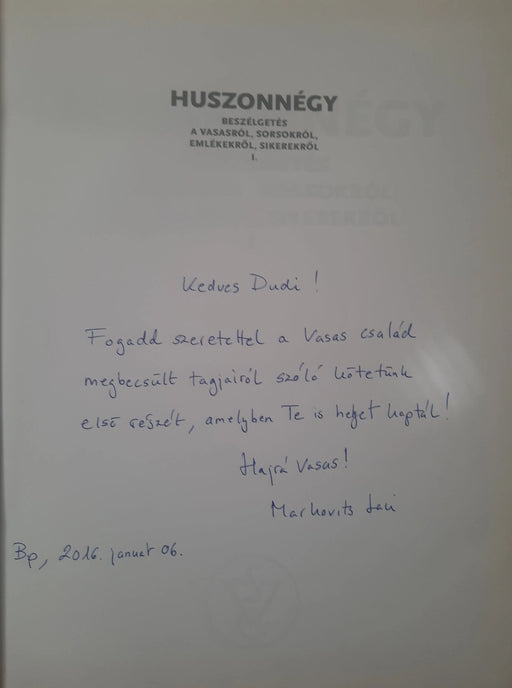 HUSZONNÉGY
BESZÉLGETÉS
A VASASRÓL, SORSOKRÓL,
EMLÉKEKRŐL, SIKEREKRŐL
I.
Kedves Dudi!
Fogadd szeretettel a Vasas család
megbecsült tagjairól szóló kötetünk
első részét, amelyben Te is helyet kaptál!
Hajrá Vasas!
Markovits Laci
Bp, 2016. január 06.